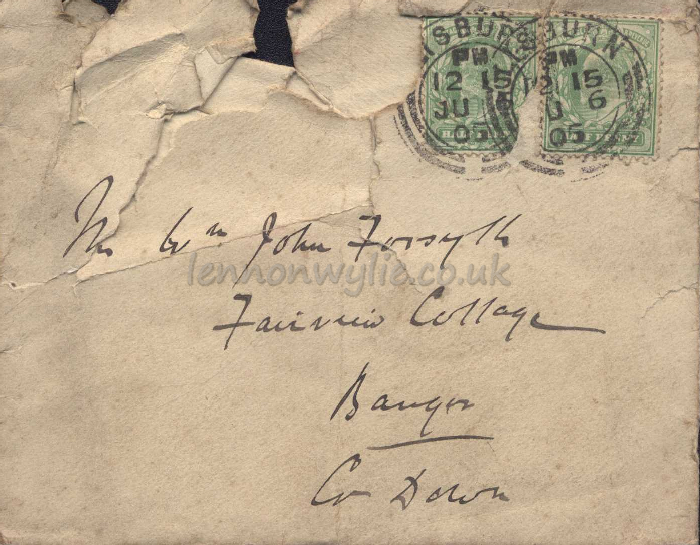 LISBURN
PM
12 15
JU 6
05
LISBURN
PM
12 15
JU 6
05
Mr Wm John Forsyth
lennonwylie.co.uk
Fairview Cottage
Bangor
Co Down